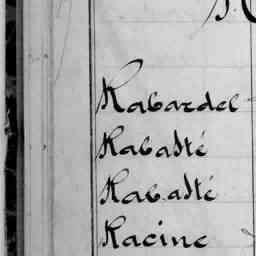 Rabardel
Rabasté
Rabasté
Racine